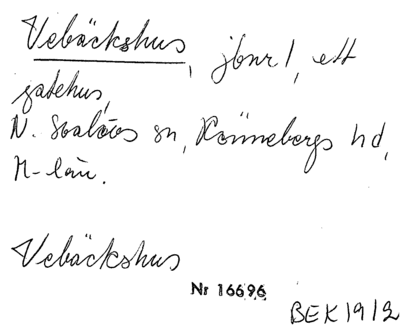 Vebäckshus, jbnr 1, ett
gatehus,
N. Svalövs sn, Rönnebergs hd,
M-län.
Vebäckshus
Nr 16696
BEK 1912